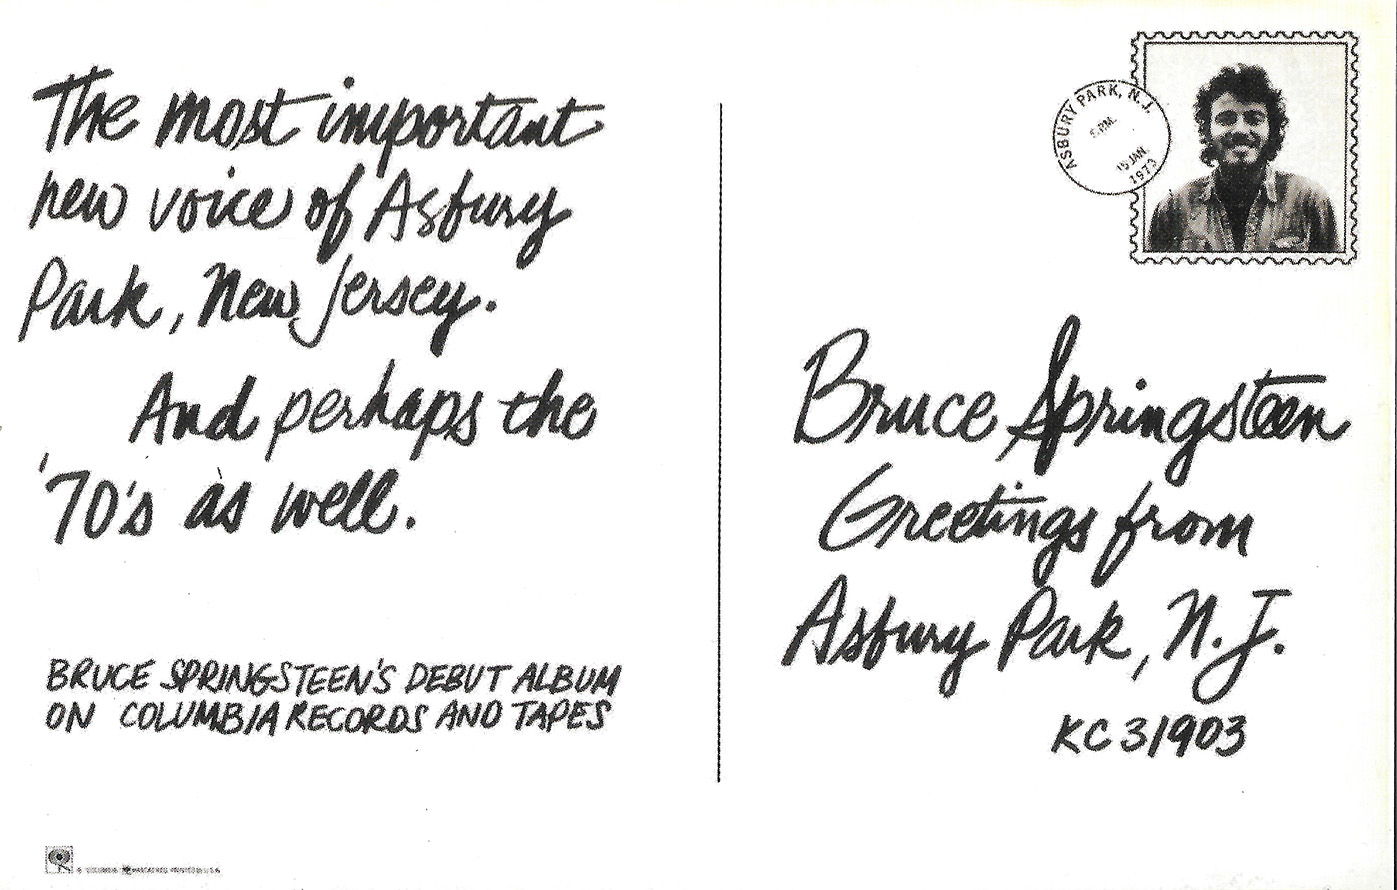 The most important
new voice of Asbury
Park, New Jersey.
And perhaps the
'70's as well.
BRUCE SPRINGSTEEN'S DEBUT ALBUM
ON COLUMBIA RECORDS AND TAPES
ASBURY PARK, N.J.
5 PM.
15 JAN.
1973
Bruce Springsteen
Greetings from
Asbury Park, N.J.
KC 31903